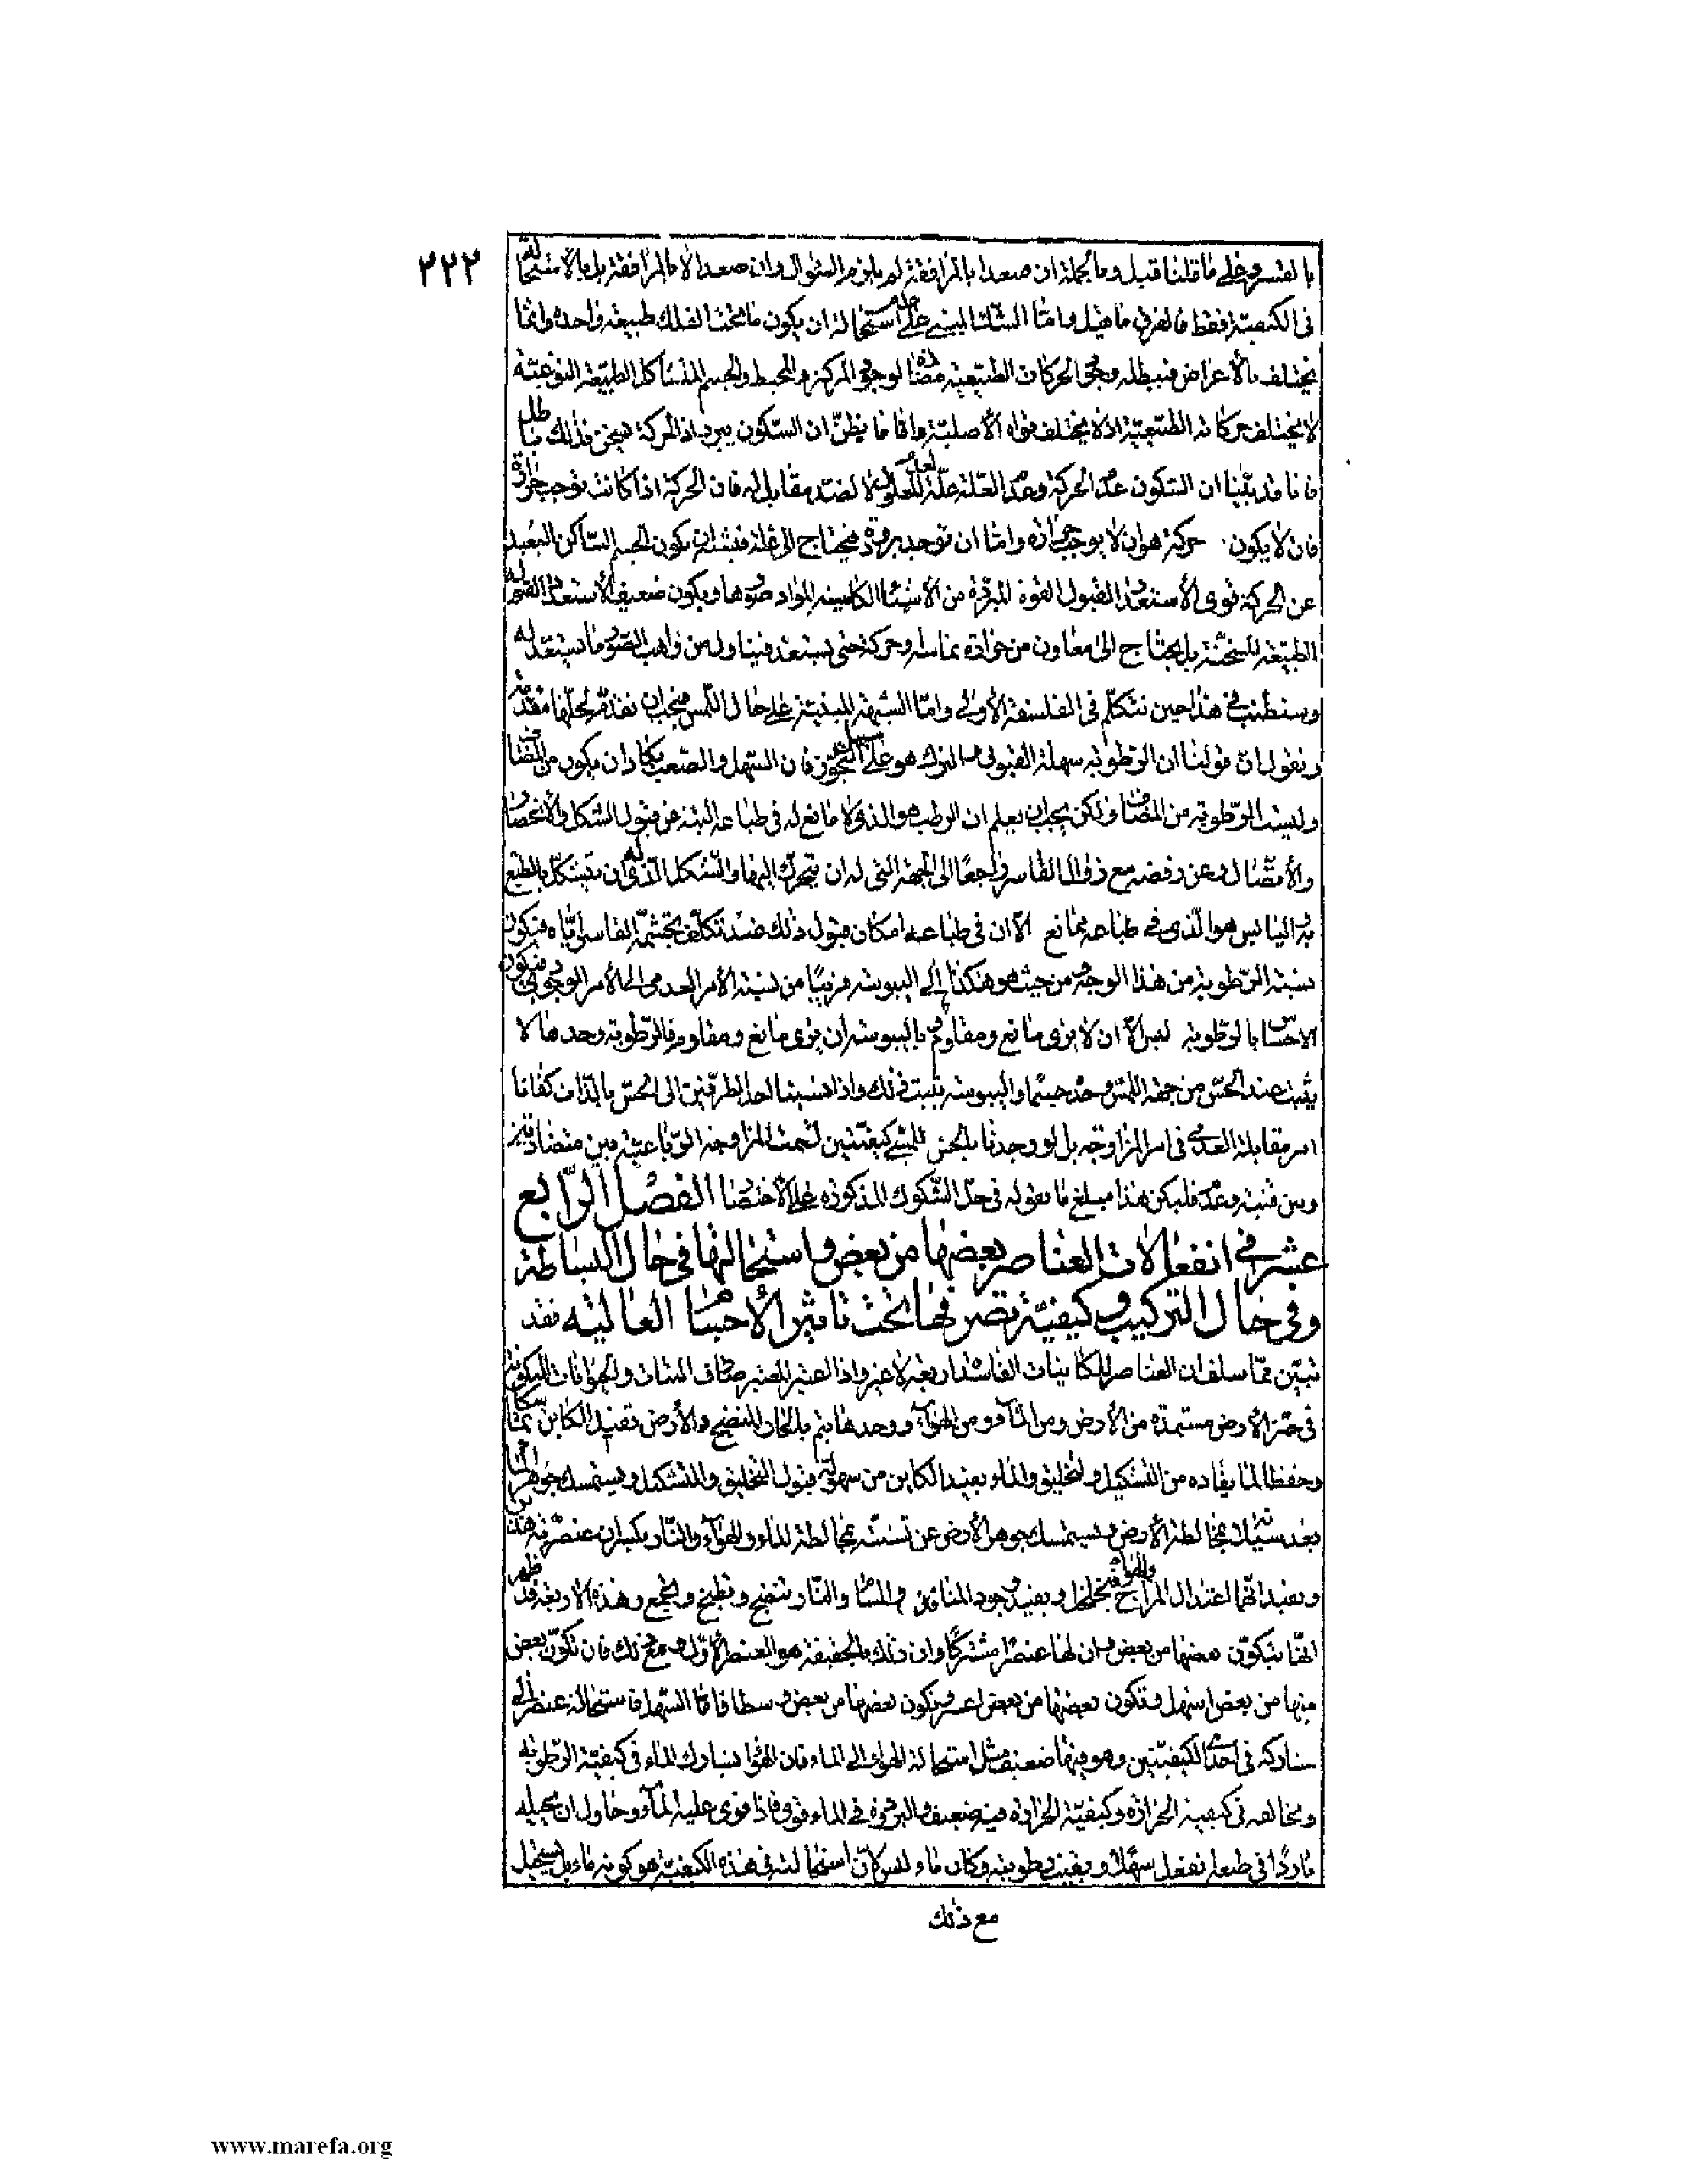 ٢٢٢
بالقسر وعلى ما قلنا قبل وبالجملة ان صعدا بالمرافقة لم يلزم السؤال وان صعدا لا بالمرافقة بل بالاستحالة
فى الكيفية فقط فالفرق ما قيل واما الشك المبنى على استحالة ان يكون ما تحت الفلك طبيعة واحدة وانما
يختلف بالأعراض فيبطله وجود الحركات الطبيعية مضادة لوجود المركز والمحيط والجسم المتشاكل الطبيعة النوعية
لا يختلف حركاته الطبيعية اذ لا يختلف قواه الأصلية واما ما يظنّ ان السّكون يبرد اذ الحركة تسخن فذلك باطل
فانا قد بيّنا ان السكون عدم الحركة وعدم العلة علّة لعدم المعلول لا لضد مقابل له فان الحركة اذا كانت توجب حرارة
فان لا يكون حركة هو ان لا يوجب حرارة واما ان توجد برودة فيحتاج الى علة فيشبه ان يكون الجسم السّاكن البعيد
عن الحركة قوى الأستعداد لقبول القوة المبرّدة من الأشياء الكاسية للمواد صورها ويكون ضعيف الأستعداد لقبول
الطبيعة المسخّنة بل يحتاج الى معاون من حرارة تماسه وحركة حتى يستعد فيتناول من واهب الصّور ما يستعد له
وسنطنب فى هذا حين نتكلّم فى الفلسفة الأولى وامّا الشبهة المبنية على حال اللّمس فيجب ان نقدّم لحلّها مقدمة
ونقول انّ قولنا ان الرّطوبة سهلة القبول والترك هو على التجوّز فان السّهل والصّعب يكاد ان يكون من المضاف
وليست الرّطوبة من المضاف ولكن يجب ان يعلم ان الرطب هو الذى لا مانع له فى طباعه البتة عن قبول الشكل والأنحصار
والأتصال وعن رفضه مع زوال القاسر راجعًا الى الجهة التى له ان يتحرّك اليها والشكل الّذى له ان يتشكّل بالطبع
اليابس هو الّذى فى طباعه ممانع الّا ان فى طباعه امكان قبول ذلك عند تكلّف يجشّمه القاسر ايّاه فيكون
نسبة الرّطوبة من هذا الوجه من حيث هو هكذا إلى اليبوسة قريبًا من نسبة الأمر العدمى الى الأمر الوجودى فيكون
الأحساس بالرّطوبة ليس الّا ان لا يرى مانع ومقاوم وباليبوسة ان يرى مانع ومقاوم فالرّطوبة وحدها لا
يثبت عند الحسّ من جهة اللمس وحده جسمًا واليبوسة يثبت ذلك واذا نسبنا احد الطرفين الى الحسّ بالذات كفانا
امر مقابلة العدمى فى امر المزاوجة بل لو وجدنا بالحس للشىء كيفيّتين لتمت المزاوجة الرّباعية بين متضادتين
وبين قنية وعدم فليكن هذا مبلغ ما نقوله فى حلّ الشّكوك المذكورة على الأختصار الفصل الرّابع
عشر فى انفعالات العناصر بعضها من بعض واستحالتها فى حال البساطة
وفى حال التركيب وكيفيّة تصرفها تحت تاثير الأجسام العالية فقد
تبيّن ممّا سلف ان العناصر للكائنات الفاسدة اربعة لا غير واذا اعتبر المعتبر صادف النبات والحيوانات المتكونة
فى حيز الأرض مستمدة من الأرض ومن الماء ومن الهواء ووجدها يتم بالحار المنضج والأرض تفيد الكائن تماسكا
وحفظا لما يفاده من التشكيل والتخليق والماء يفيد الكاين من سهولة قبول التخليق والتشكيل ويستمسك جوهر الماء
بعد سيلانه بمخالطة الأرض ويستمسك جوهر الأرض عن تشتته بمخالطة الماء والهواء والنّار يكسران عنصرية هذين
ويفيدانهما اعتدال المزاج والهواء يخلخل ويفيد وجود المنافذ والمسام والنّار تنضج وتطبخ ويجمع وهذه الأربعة قد ظهر
انّها يتكوّن بعضها من بعض وان لها عنصرًا مشتركًا وان ذلك بالحقيقة هو العنصر الأول ومع ذلك فان تكوّن بعض
منها من بعض اسهل وتكون بعضها من بعض اعسر وتكون بعضها من بعض وسطا فامّا السّهل فاستحالة عنصر الى
مشاركه فى احدى الكيفيّتين وهو فيها ضعيف مثل استحالة الهواء الى الماء فان الهواء يشارك الماء فى كيفيّة الرّطوبة
ويخالفه فى كيفية الحرارة وكيفيّة الحرارة فيه ضعيفة والبرودة فى الماء قوى فاذا قوى عليه الماء وحاول ان يحيله
باردًا فى طبعه انفعل سهلًا وبقيت رطوبته وكان ماء وليس كان استحالته فى هذه الكيفيّة هو كونه ماء بل يستحيل
مع ذلك
www.marefa.org